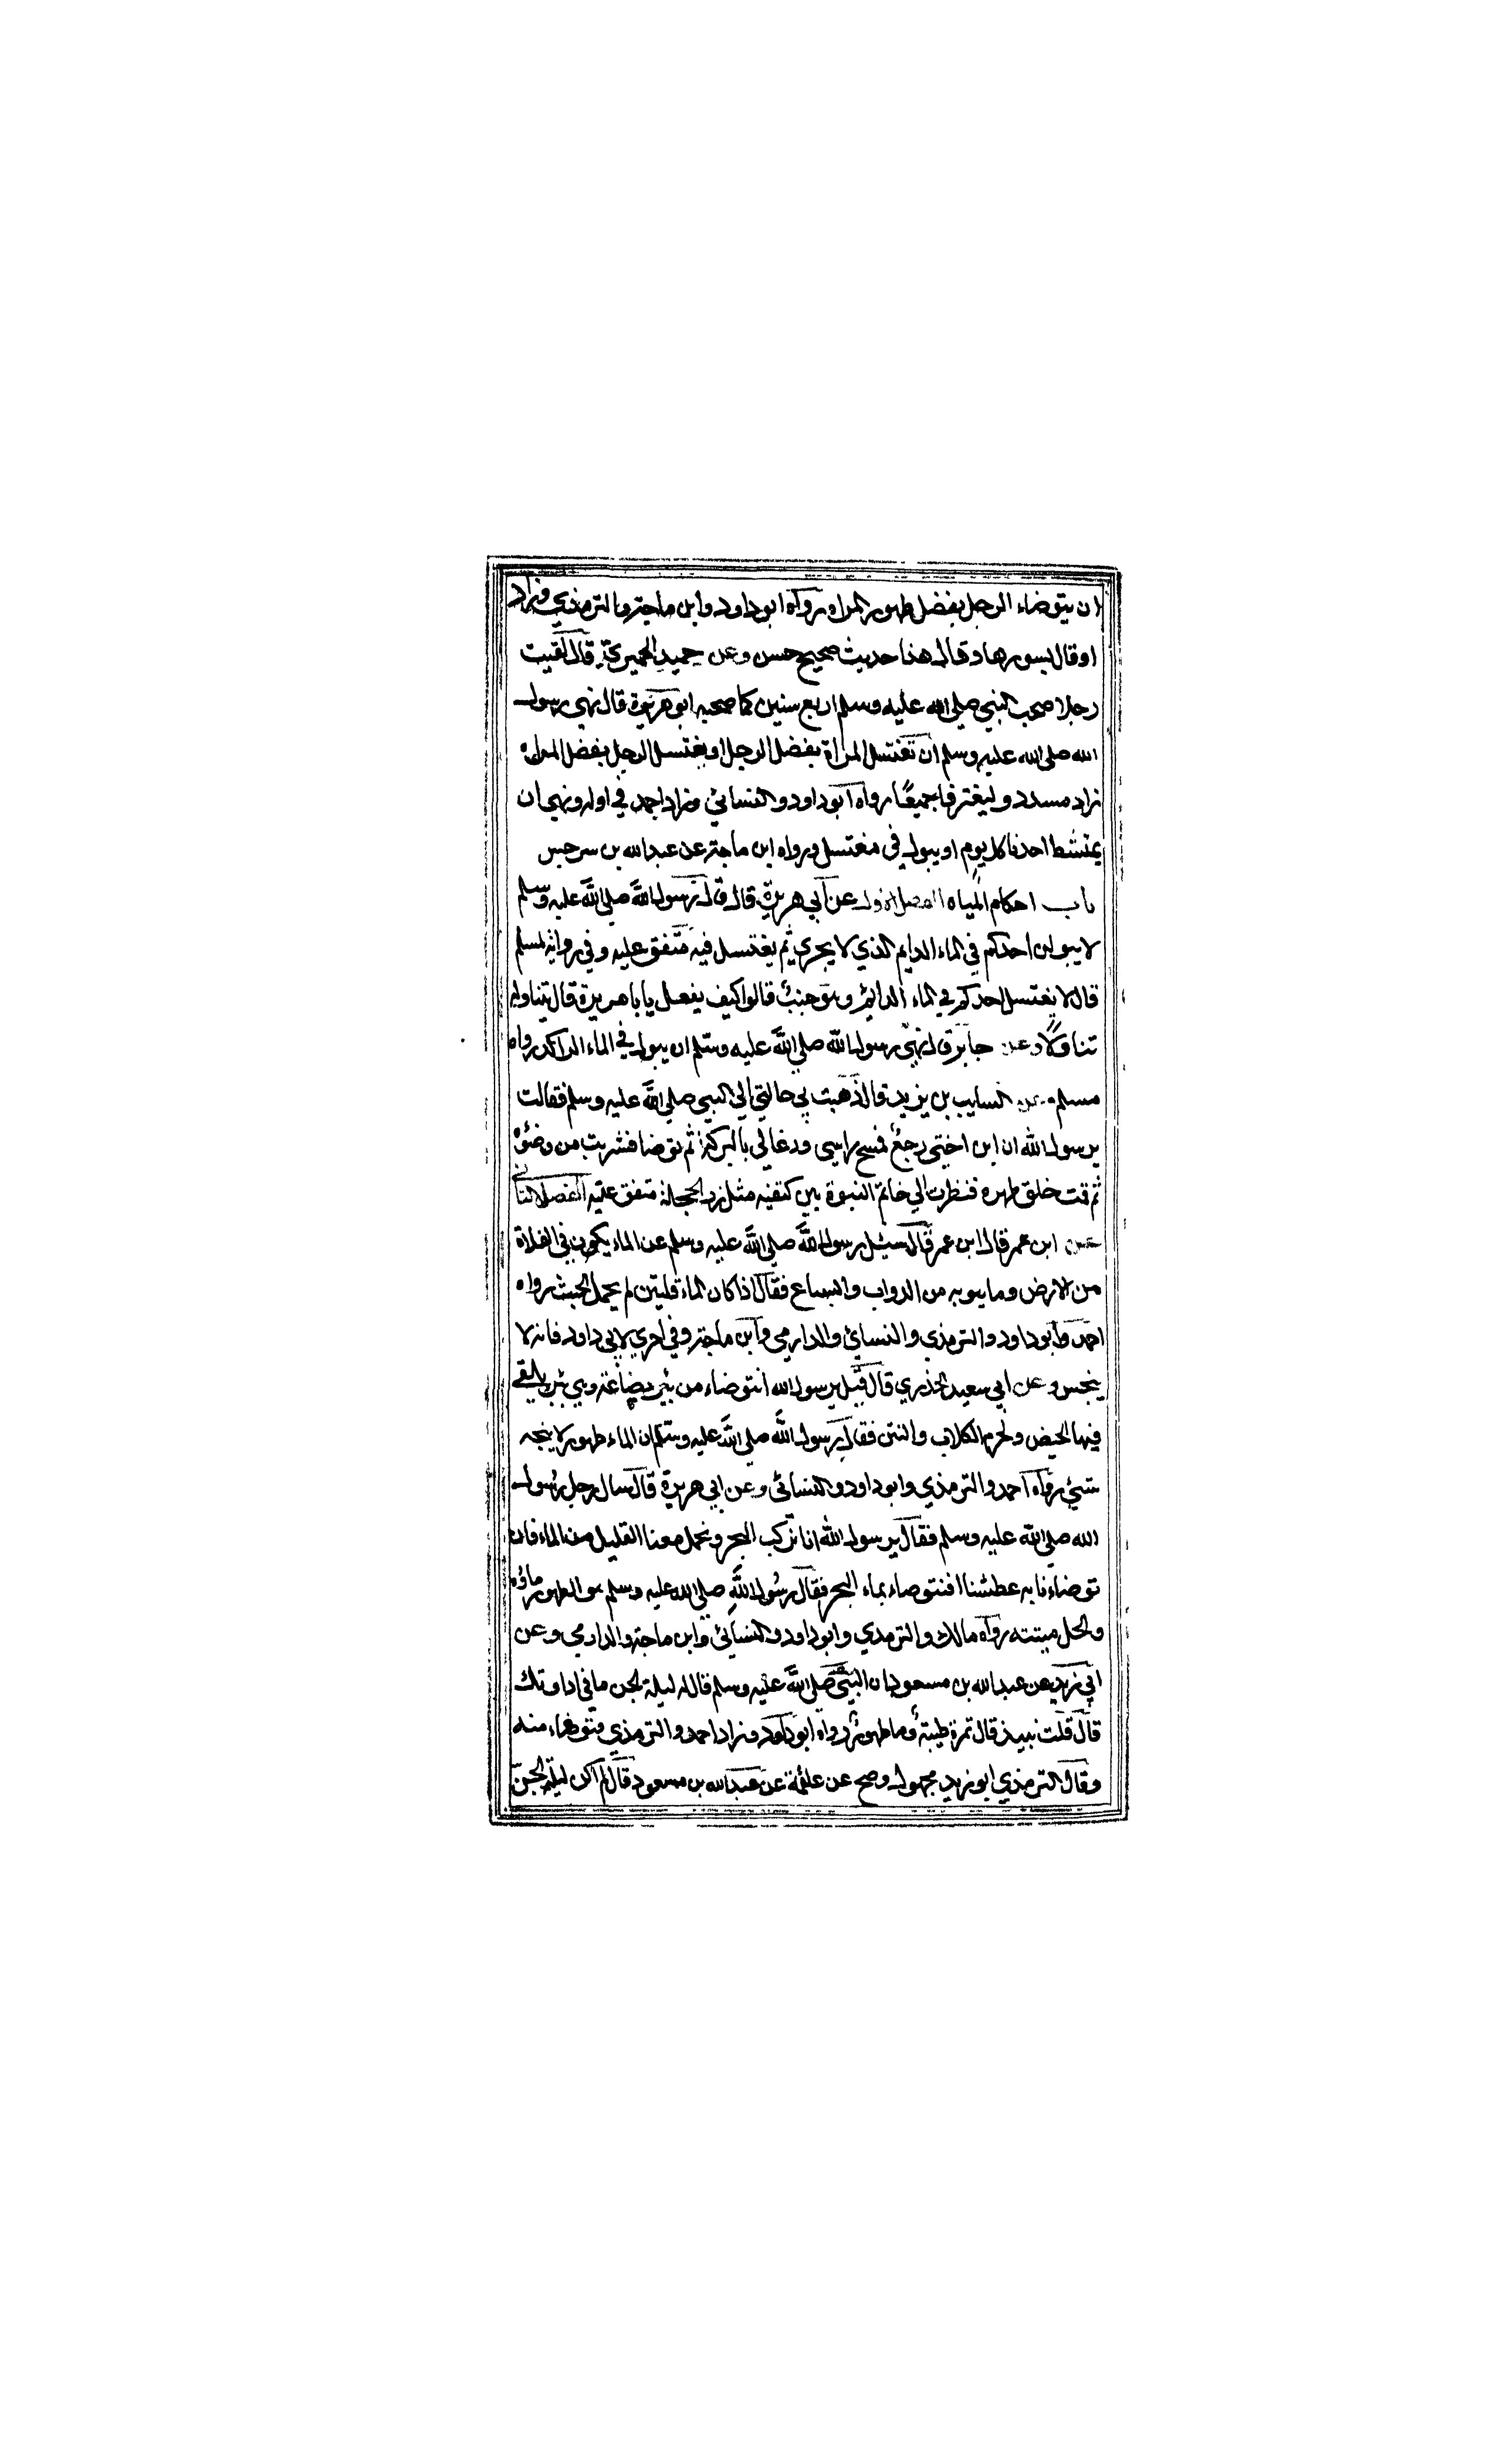 ان يتوضاء الرجل بفضل طهور المراه رواه ابوداود وابن ماجة والترمذي وزاد
اوقال بسورها وقال هذا حديث صحيح حسن وعن حميد الحميري قال لقيت
رجلا صحب النبي صلي الله عليه وسلم اربع سنين كما صحبه ابو هريرة قال نهي رسول
الله صلى الله عليه وسلم ان تغتسل المراة بفضل الرجل او يغتسل الرجل بفضل المراه
زاد مسدد وليغترفا جميعًا رواه ابوداود والنسائي وزاد احمد في اوله ونهي ان
يمتشط احدنا كل يوم او يبول في مغتسل ورواه ابن ماجة عن عبدالله بن سرجس
باب احكام المياه الفصل الاول عن ابي هريرة قال قال رسول الله صلي الله عليه وسلم
لا يبولن احدكم في الماء الدايم الذي لا يجري ثم يغتسل فيه متفق عليه وفي رواية لمسلم
قال لا يغتسل احدكم في الماء الدائم وهو جنب قالوا كيف يفعل يابا هريرة قال يتناوله
تناولًا وعن جابر قال نهي رسول الله صلي الله عليه وسلم ان يبول في الماء الراكد رواه
مسلم وعن السايب بن يزيد قال ذهبت بي خالتي الي النبي صلي الله عليه وسلم فقالت
يرسول الله ان ابن اختي وجع فمسح راسي ودعالي بالبركة ثم توضا فشربت من وضوءه
ثم قمت خلف ظهره فنظرت الي خاتم النبوة بين كتفيه مثل زر الحجلة متفق عليه الفصل الثاني
عن ابن عمر قال ابن عمر قال سئل رسول الله صلي الله عليه وسلم عن الماء يكون في الفلاة
من الارض وما ينوبه من الدواب والسباع فقال اذا كان الماء قلتين لم يحمل الخبث رواه
احمد وابوداود والترمذي والنسائي والدارمي وابن ماجة وفي اخري لابي داود فانه لا
ينجس وعن ابي سعيد الخذري قال قيل يرسول الله انتوضاء من بئر بضاعة وهي بئر يلقي
فيها الحيض ولحوم الكلاب والنتن فقال رسول الله صلي الله عليه وسلم ان الماء طهور لا ينجسه
شيئ رواه احمد والترمذي وابوداود والنسائي وعن ابي هريرة قال سال رجل رسول
الله صلي الله عليه وسلم فقال يرسول الله انا نركب البحر ونحمل معنا القليل من الماء فان
توضاءنا به عطشنا افنتوضاء بماء البحر فقال رسول الله صلي الله عليه وسلم هو الطهور ماؤه
والحل ميتته رواه مالك والترمذي وابوداود والنسائي وابن ماجة والدارمي وعن
ابي زيد عن عبدالله بن مسعود ان النبي صلي الله عليه وسلم قال له ليلة الجن ما في اداوتك
قال قلت نبيذ قال تمرة طيبة وماء طهور رواه ابوداود وزاد احمد والترمذي فتوضاء منه
وقال الترمذي ابو زيد مجهول وصح عن علقمة عن عبدالله بن مسعود قال لم اكن ليلة الجن